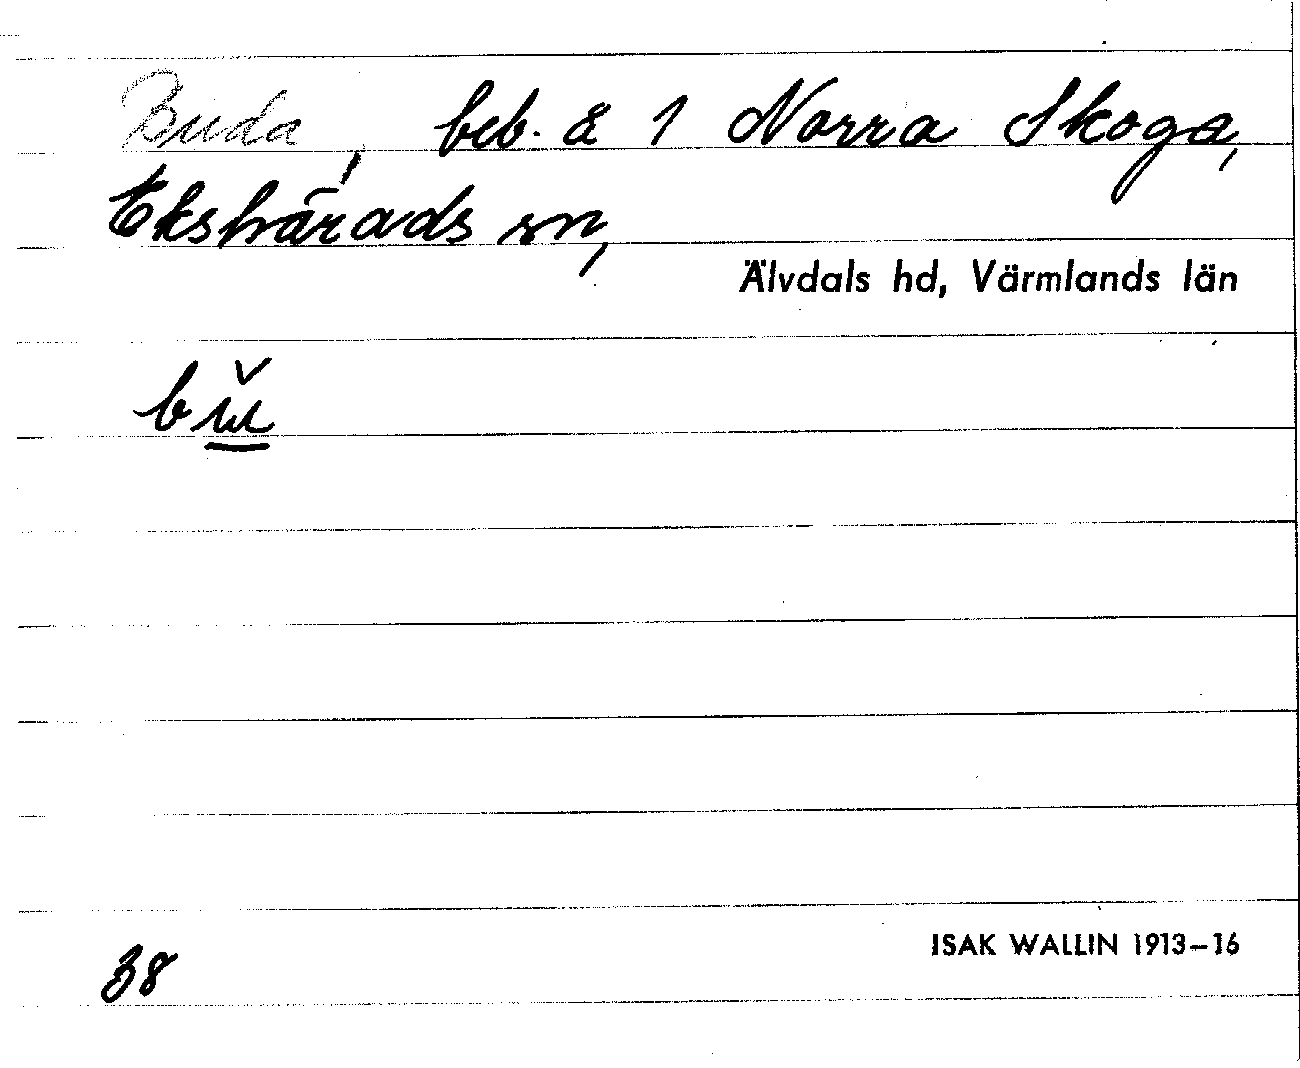 Buda, beb. å 1 Norra Skoga,
Ekshärads sn,
Älvdals hd, Värmlands län
38
ISAK WALLIN 1913–16